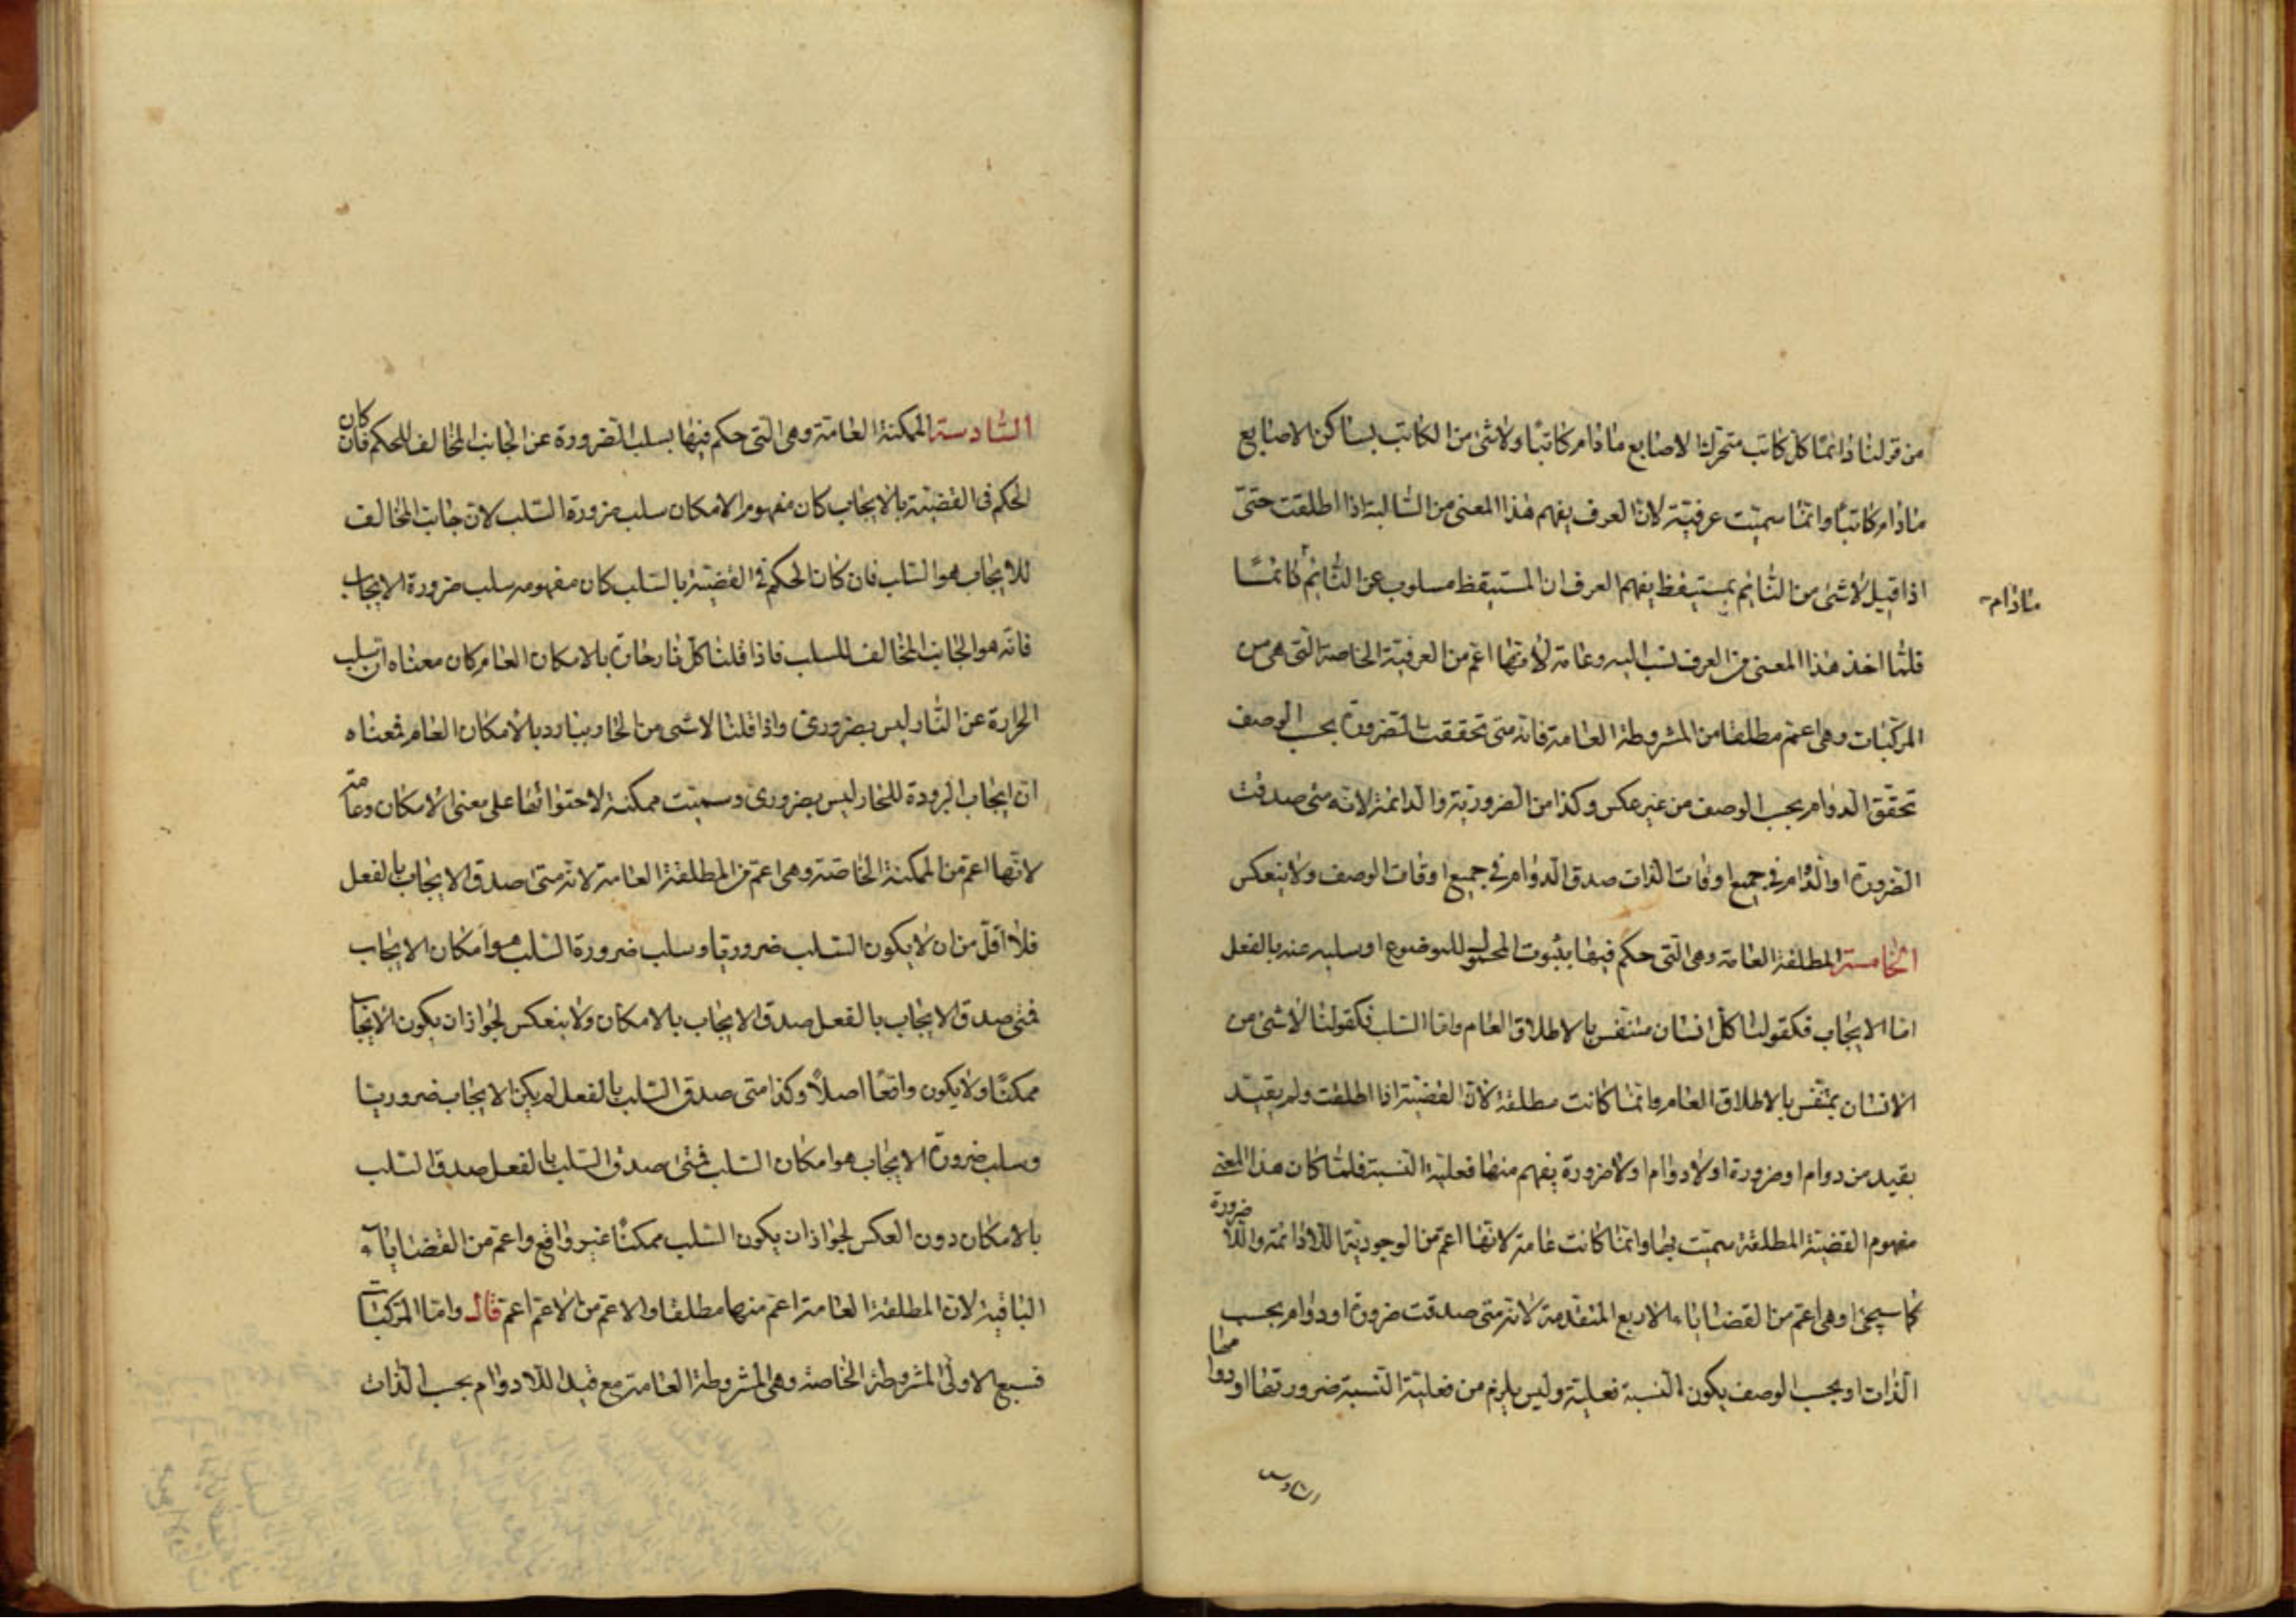 من قولنا دائمًا كل كاتب متحرك الاصابع مادام كاتبًا ولاشئ من الكاتب بساكن الاصابع
مادام كاتبًا وانما سميت عرفية لان العرف يفهم هذا المعنى من السالبة اذا اطلقت حتى
اذا قيل لاشئ من النائم بمستيقظ يفهم العرف ان المستيقظ مسلوب عن النائم نائمًا
مادام
فلما اخذ هذا المعنى من العرف نسب اليه وعامة لانها اعم من العرفية الخاصة التى هى من
المركبات وهى اعم مطلقا من المشروطة العامة فانه متى تحققت الضرورة بحسب الوصف
تحقق الدوام بحسب الوصف من غير عكس وكذا من الضرورية والدائمة لانه متى صدقت
الضرورة او الدوام فى جميع اوقات الذات صدق الدوام فى جميع اوقات الوصف ولا ينعكس
الخامسة المطلقة العامة وهى التى حكم فيها بثبوت المحمول للموضوع او سلبه عنه بالفعل
اما الايجاب فكقولنا كل انسان متنفس بالاطلاق العام واما السلب فكقولنا لاشئ من
الانسان بمتنفس بالاطلاق العام وانما كانت مطلقة لان القضية اذا اطلقت ولم يقيد
بقيد من دوام او ضرورة او لا دوام او لا ضرورة يفهم منها فعلية النسبة فلما كان هذا المعنى
مفهوم القضية المطلقة سميت بها وانما كانت عامة لانها اعم من الوجودية اللادائمة واللا ضرورة
كما سيجئ وهى اعم من القضايا الاربع المتقدمة لانه متى صدقت ضرورة او دوام بحسب
الذات او بحسب الوصف يكون النسبة فعلية وليس يلزم من فعلية النسبة ضرورتها او دوامها
السادسة
السادسة الممكنة العامة وهى التى حكم فيها بسلب الضرورة عن الجانب المخالف للحكم فان كان
الحكم فى القضية بالايجاب كان مفهوم الامكان سلب ضرورة السلب لان جانب المخالف
للايجاب هو السلب فان كان الحكم فى القضية بالسلب كان مفهومه سلب ضرورة الايجاب
فانه هو الجانب المخالف للسلب فاذا قلنا كل نار حارة بالامكان العام كان معناه ان سلب
الحرارة عن النار ليس بضرورى واذا قلنا لاشئ من الحار ببارد بالامكان العام فمعناه
ان ايجاب البرودة للحار ليس بضرورى وسميت ممكنة لاحتوائها على معنى الامكان وعامة
لانها اعم من الممكنة الخاصة وهى اعم من المطلقة العامة لانه متى صدق الايجاب بالفعل
فلا اقل من ان لا يكون السلب ضروريا وسلب ضرورة السلب هو امكان الايجاب
فمتى صدق الايجاب بالفعل صدق الايجاب بالامكان ولا ينعكس لجواز ان يكون الايجاب
ممكنًا ولا يكون واقعًا اصلاً وكذا متى صدق السلب بالفعل لم يكن الايجاب ضروريا
وسلب ضرورة الايجاب هو امكان السلب فمتى صدق السلب بالفعل صدق السلب
بالامكان دون العكس لجواز ان يكون السلب ممكنًا غير واقع واعم من القضايا
الباقية لان المطلقة العامة اعم منها مطلقا والاعم من الاعم اعم قال واما المركبات
فسبع الاولى المشروطة الخاصة وهى المشروطة العامة مع قيد اللادوام بحسب الذات